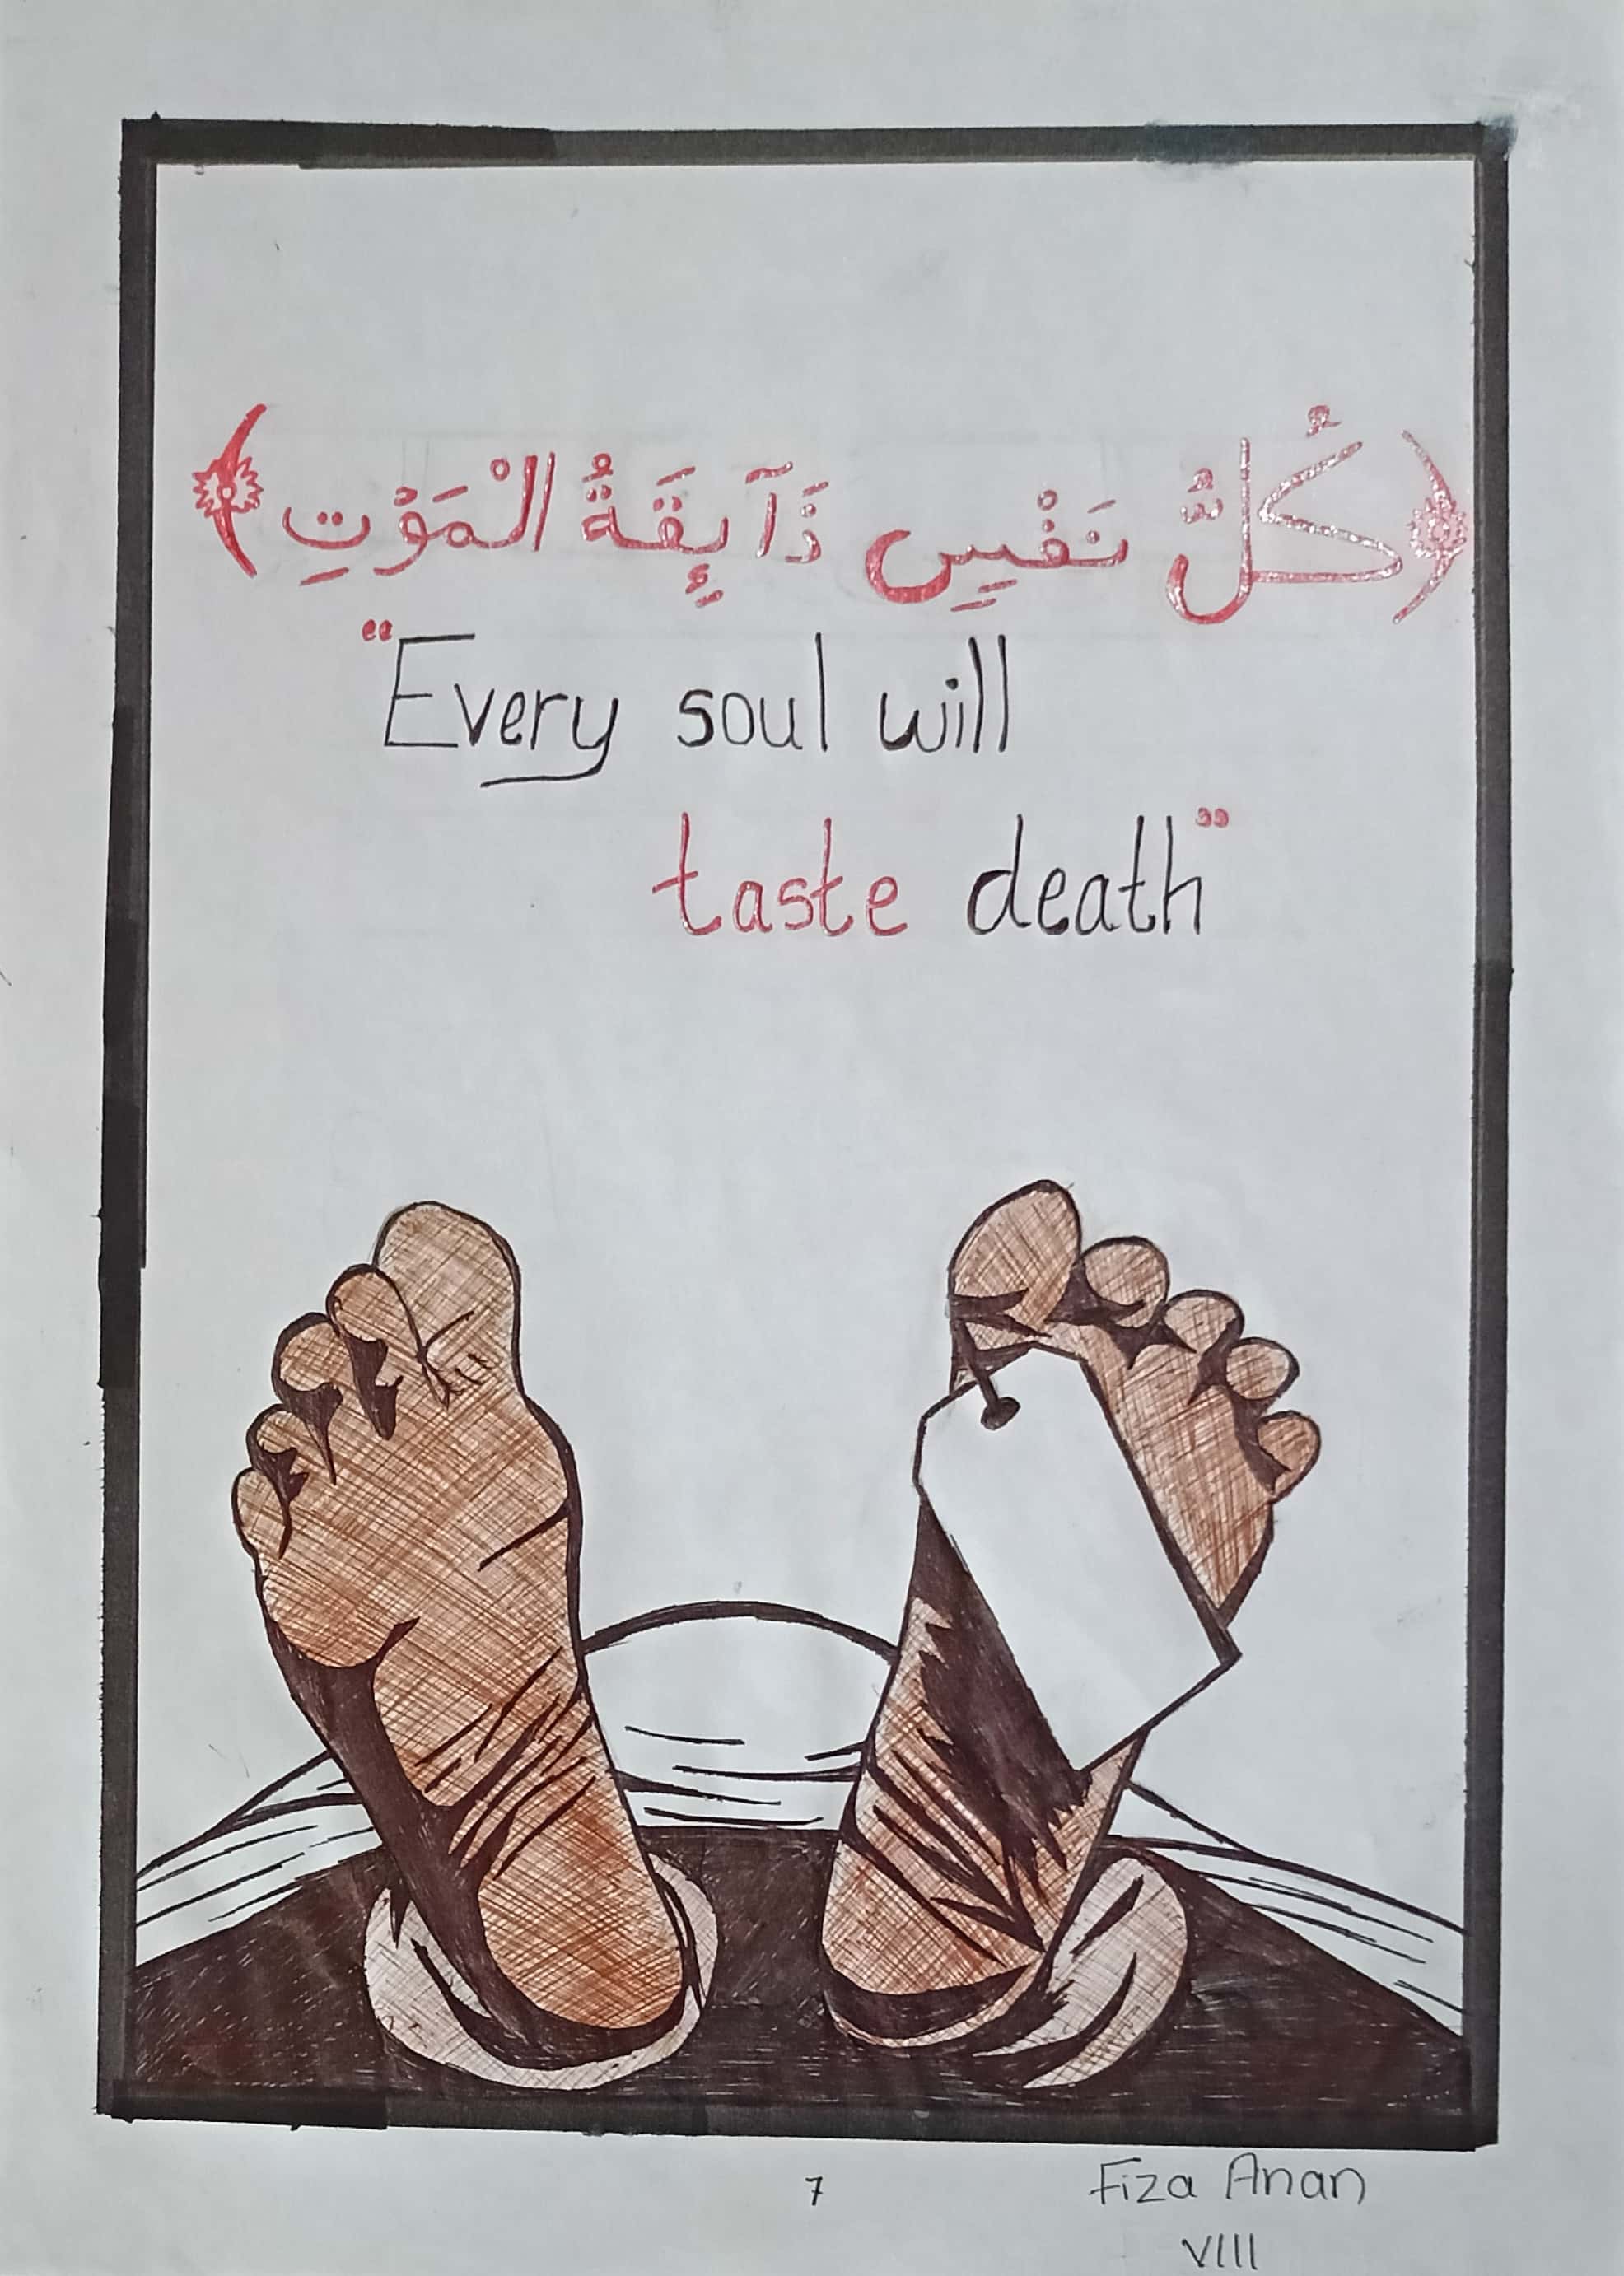 ﴿كُلُّ نَفْسٍ ذَآئِقَةُ الْمَوْتِ﴾
"Every soul will
taste death"
7
Fiza Anan
VIII